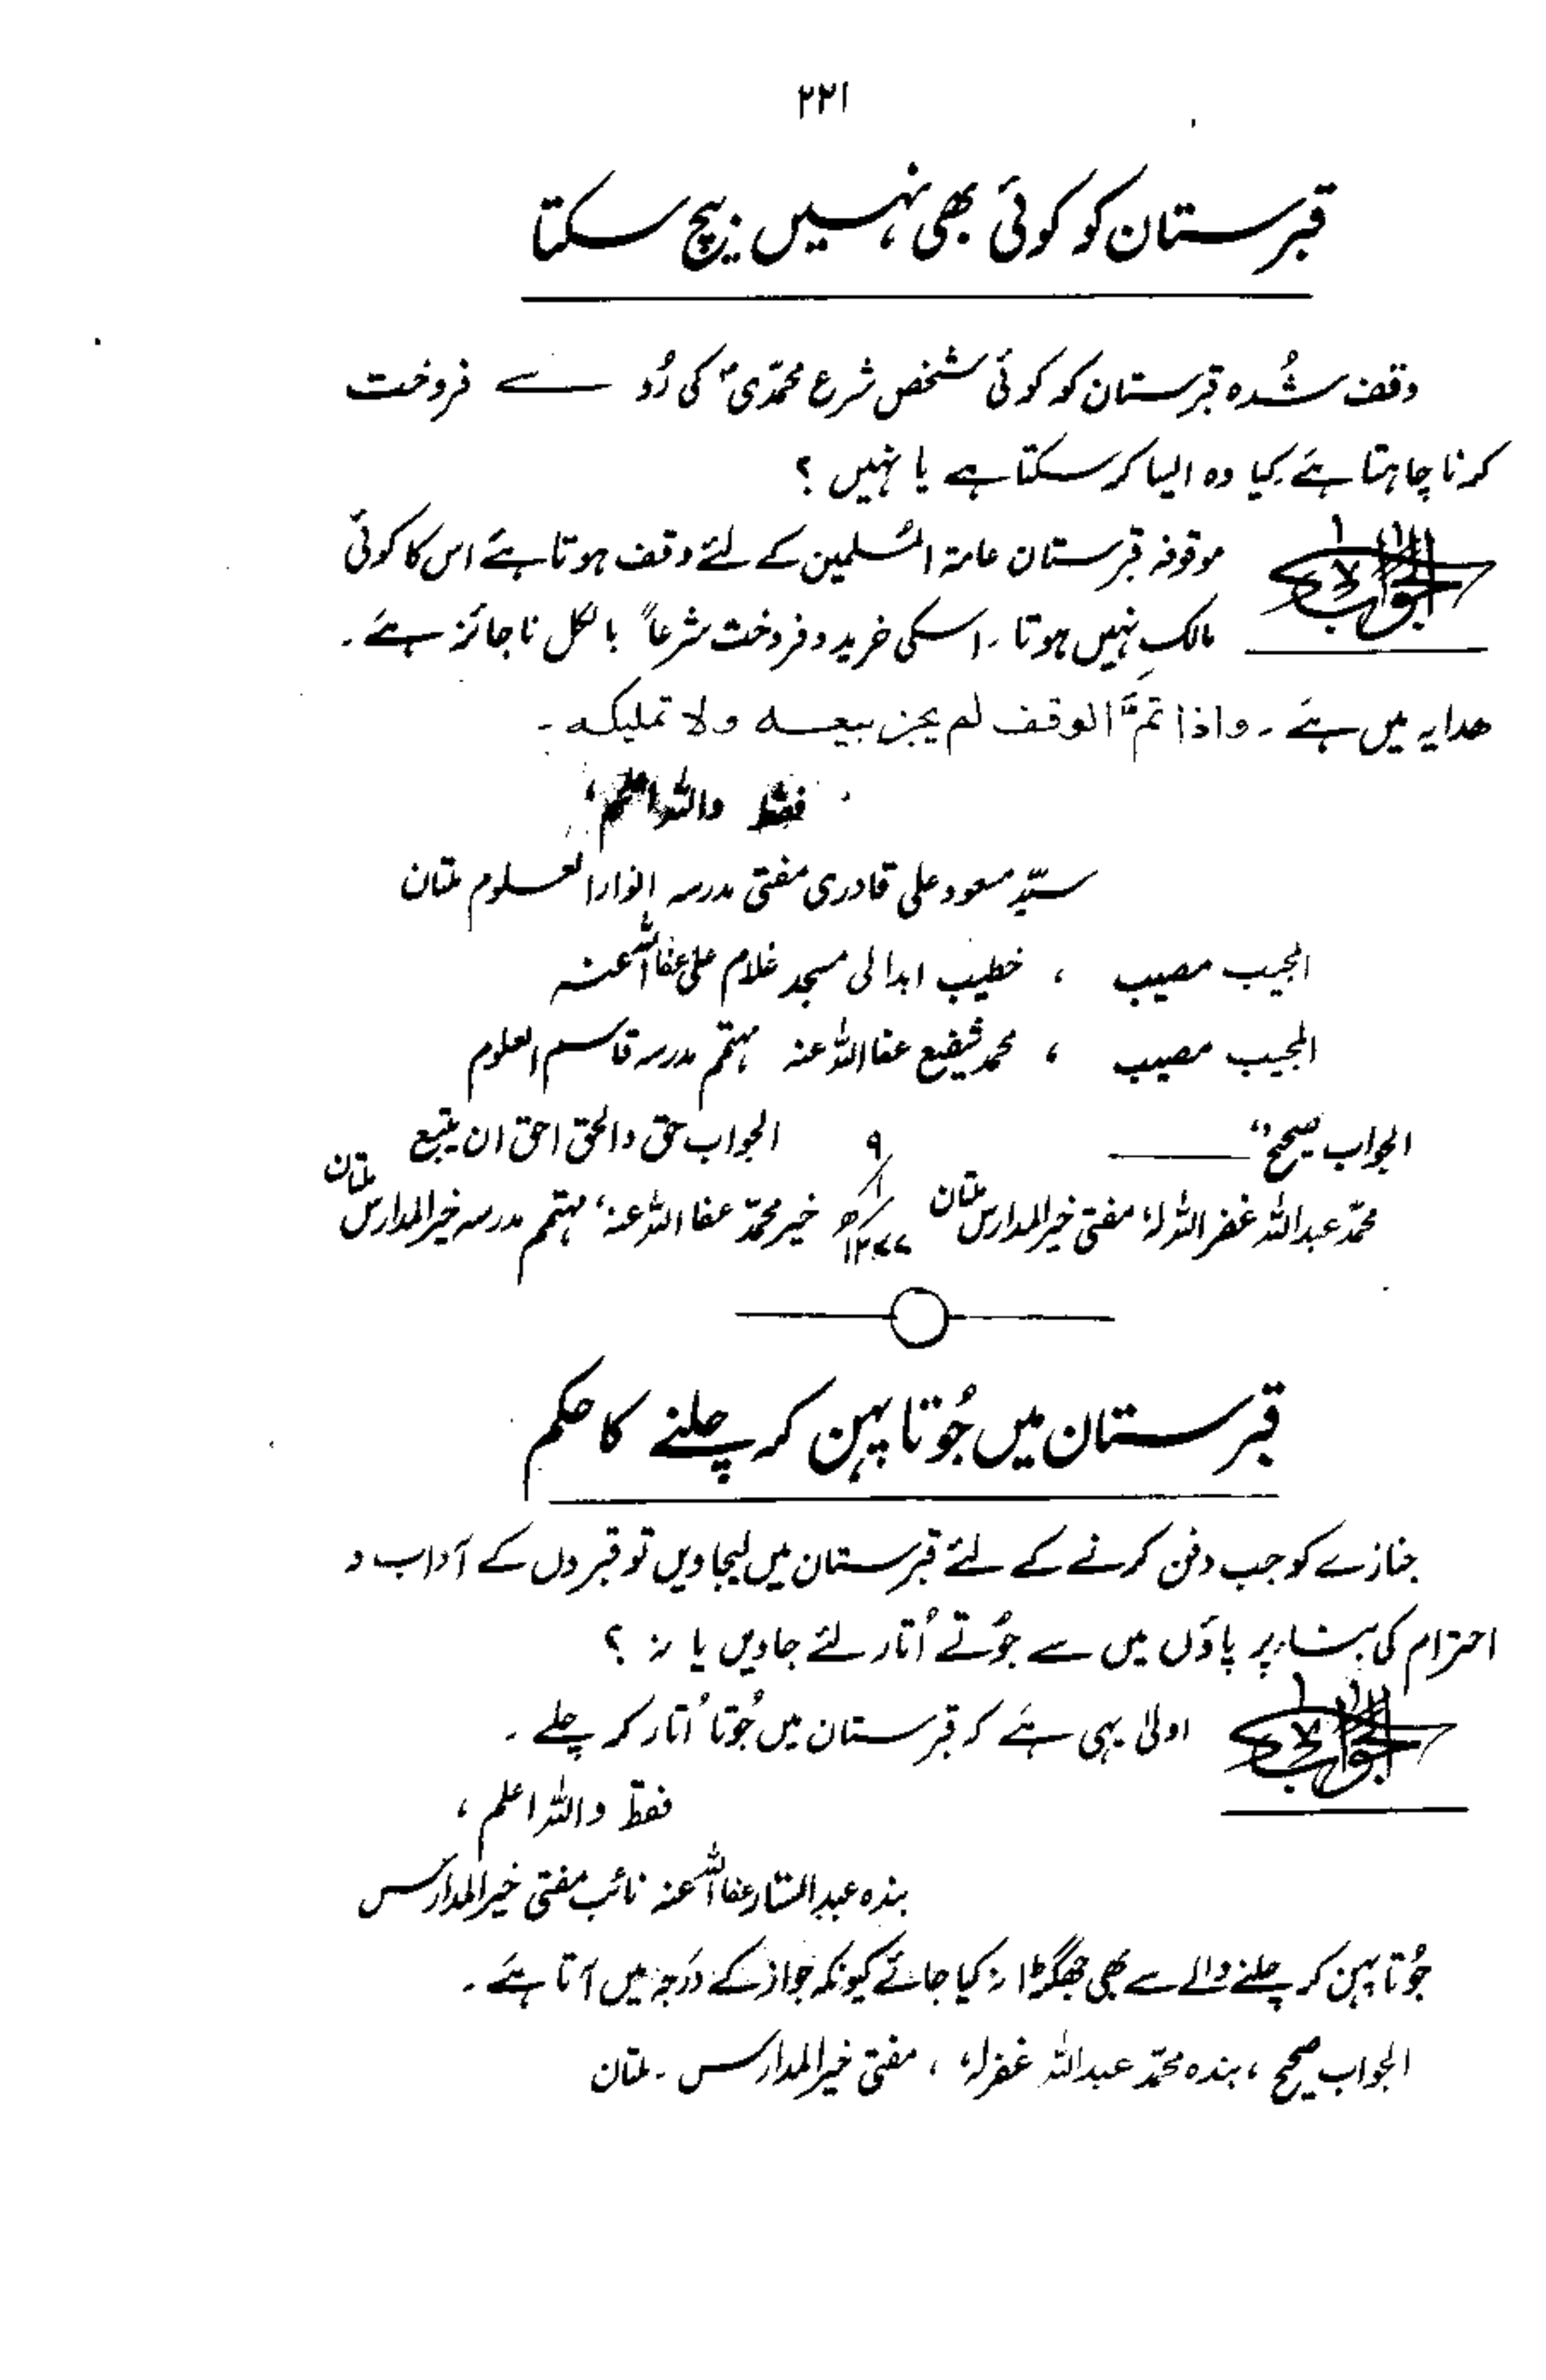 ۲۲۱
قبرستان کو کوئی بھی نہیں بیچ سکتا
وقف شُدہ قبرستان کو کوئی شخص شرع محمدّیؐ کی رُو سے فروخت
کرنا چاہتا ہے کیا وہ ایسا کر سکتا ہے یا نہیں ؟
الجواب موقوفہ قبرستان عامۃ المُسلمین کے لئے وقف ہوتا ہے اس کا کوئی
مالک نہیں ہوتا ۔ اسکی خرید و فروخت شرعاً بالکل ناجائز ہے ۔
ھدایہ میں ہے ۔ واذا تمّ الوقف لم یجز بیعہ ولا تملیکہ ۔
فقط واللہ اعلم ،
سیّد مسعود علی قادری مفتی مدرسہ انوار العلوم ملتان
المجیب مصیب ، خطیب ابدالی مسجد غلام علی عفا اللہ عنہ
المجیب مصیب ، محمد شفیع عفا اللہ عنہ مہتمم مدرسہ قاسم العلوم
الجواب صحیح، ۹ الجواب حق والحق احق ان یتبع
محمدّ عبداللہ غفر اللہ لہٗ مفتی خیر المدارس ملتان ۱ / ۱۳۷۷ھ خیر محمدّ عفا اللہ عنہ، مہتمم مدرسہ خیر المدارس ملتان
قبرستان میں جُوتا پہن کر چلنے کا حکم
جنازے کو جب دفن کرنے کے لئے قبرستان میں لیجاویں تو قبروں کے آداب و
احترام کی بناء پر پاؤں میں سے جُوتے اُتار لئے جاویں یا نہ ؟
الجواب اولیٰ یہی ہے کہ قبرستان میں جُوتا اُتار کر چلے ۔
فقط واللہ اعلم ،
بندہ عبدالستار عفا اللہ عنہ نائب مفتی خیر المدارس
جُوتا پہن کر چلنے والے سے بھی جھگڑا نہ کیا جائے کیونکہ جواز کے درجہ میں آتا ہے ۔
الجواب صحیح ، بندہ محمدّ عبداللہ غفرلہٗ ، مفتی خیر المدارس ۔ ملتان